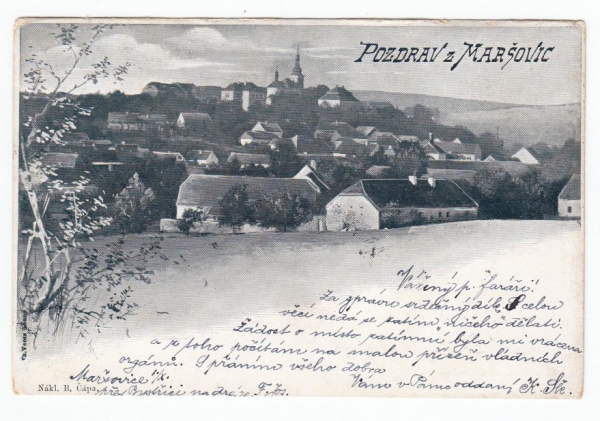 Pozdrav z Maršovic
Vážený p. faráři!
Za zprávu srdečný dík. S celou
věcí nedá se zatím ničeho dělati.
Žádost o místo zatímní byla mi vrácena
a z toho počítám na malou přízeň vládních
orgánů. S přáním všeho dobra
Vám v Pánu oddaný K.
Maršovice
přes Bystřici nad
Nákl. B. Čápa,